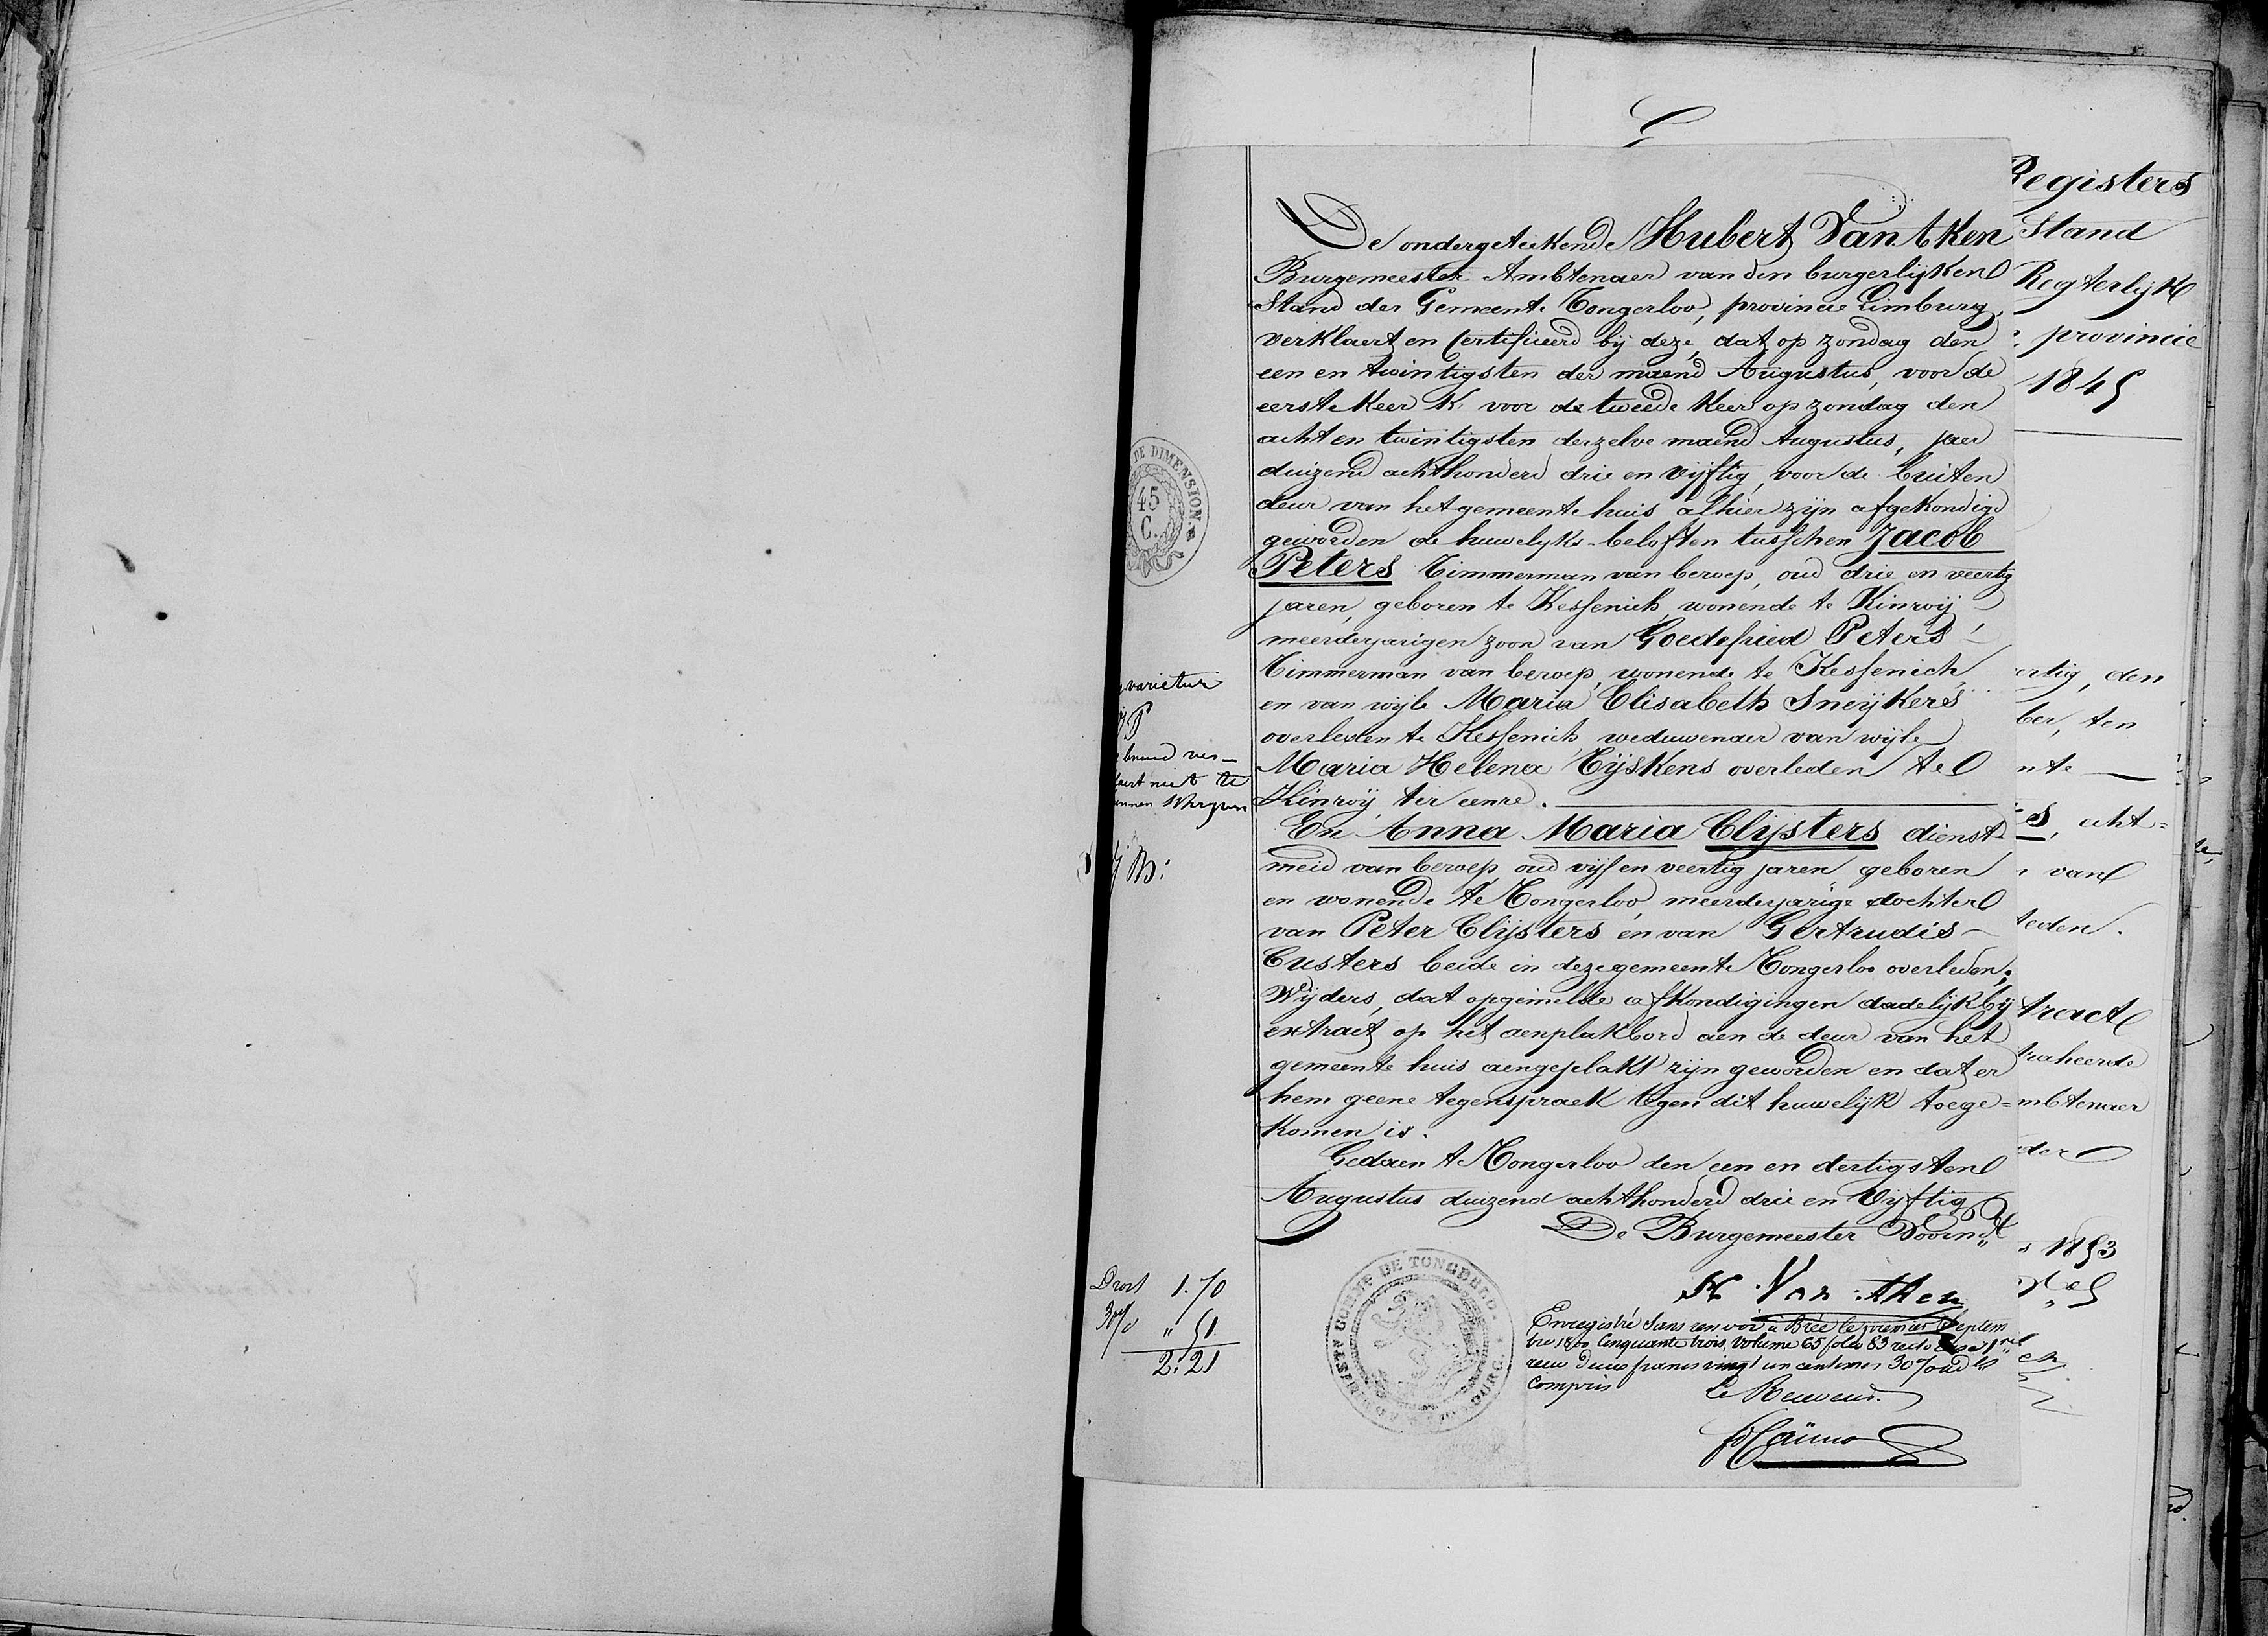 De ondergeteekende Hubert Van Aken
Burgemeester Ambtenaer van den burgerlijken
Stand der Gemeente Tongerloo, provincie Limburg,
verklaert en certificeerd bij deze, dat op zondag den
een en twintigsten der maend Augustus, voor de
eerste keer &. voor de tweede keer op zondag den
acht en twintigsten derzelve maend Augustus, jaer
duizend achthonderd drie en vijftig, voor de buiten
deur van het gemeente huis alhier zijn afgekondigd
geworden de huwelyks-beloften tusschen Jacob
Peters Timmerman van beroep, oud drie en veertig
jaren, geboren te Kessenich, wonende te Kinroij
meerderjarigen zoon van Goedefried Peters
Timmerman van beroep, wonende te Kessenich
en van wijle Maria Elisabeth Sneijkers
overleden te Kessenich weduwenaer van wijle
Maria Helena Tijskens overleden te
Kinroij, ter eenre.
En Anna Maria Clijsters dienst-
meid van beroep, oud vijf en veertig jaren geboren
en wonende te Tongerloo, meerderjarige dochter
van Peter Clijsters en van Gertrudis
Custers beide in deze gemeente Tongerloo overleden;
Wijders, dat opgemelde afkondigingen dadelijk bij
extract op het aenplakbord aen de deur van het
gemeente huis aengeplakt zijn geworden en dat er
hem geene tegenspraek tegen dit huwelijk toege=
komen is.
Gedaen te Tongerloo den een en dertigsten
Augustus duizend achthonderd drie en vijftig
De Burgemeester Voorn.d
H Van Aken
Enregistré sans renvoi à Brée le premier Septem
bre 1800 Cinquante trois, volume 65 folio 83 recto
reçu deux francs vingt un centimes 30% add.ls
compris
Le Receveur.
DE DIMENSION.
45
C.
varietur
brend ver-
laert niet te
unnen schryven
Droit 1.70
30% " 51
2.21
Registers
Stand
Regterlyk
provincie
1845
ertig, den
ber, ten
nte
s, echt=
van
leden.
tract
traheerde
mbtenaer
der
1853